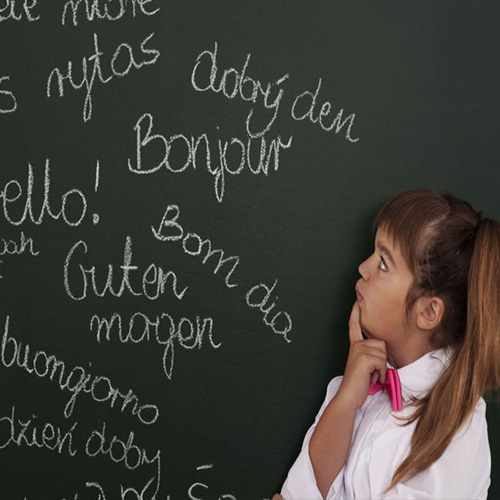 rytas
dobrý den
Bonjour
ello!
Bom dia
Guten
morgen
buongiorno
dzień dobry